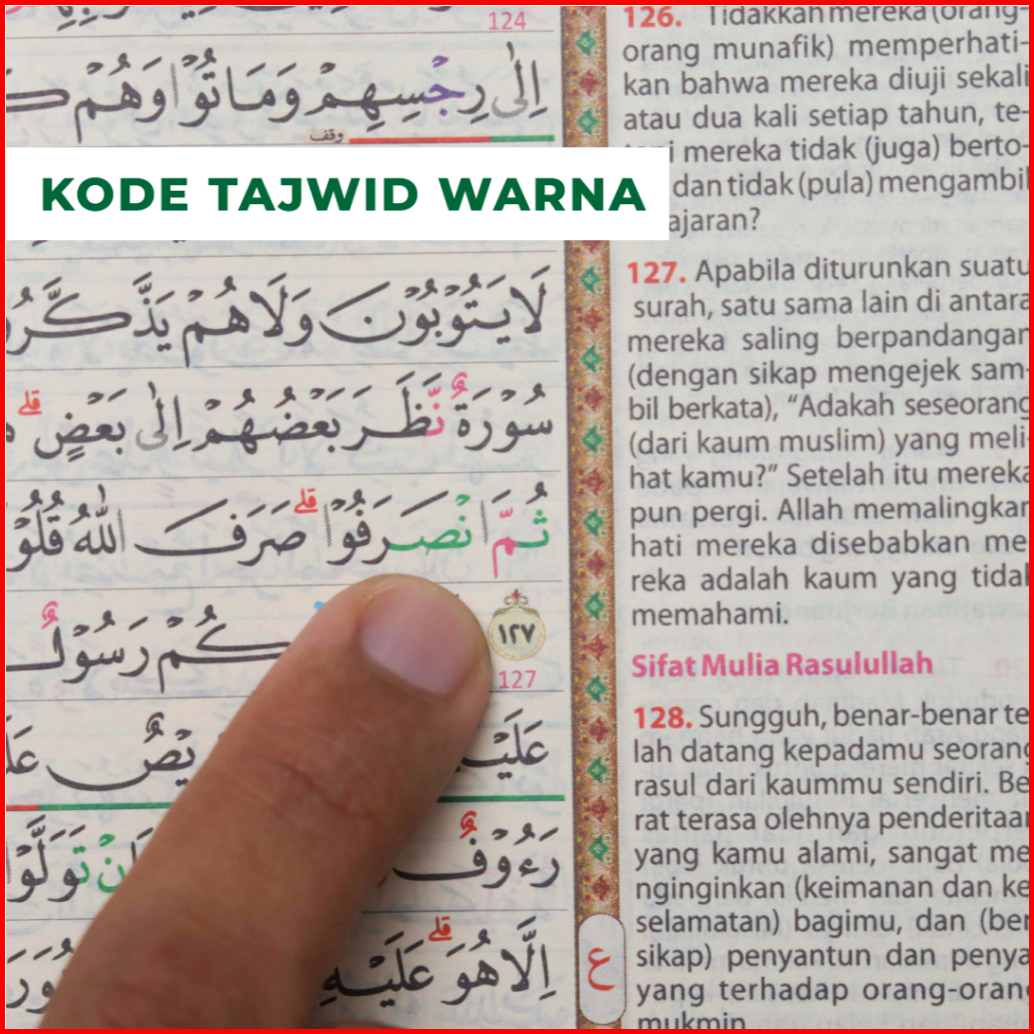 124
اِلٰى رِجْسِهِمْ وَمَاتُوْا وَهُمْ
وقف
KODE TAJWID WARNA
لَا يَتُوْبُوْنَ وَلَا هُمْ
سُوْرَةٌ نَّظَرَ بَعْضُهُمْ اِلٰى بَعْضٍۗ
ثُمَّ انْصَرَفُوْاۗ صَرَفَ اللّٰهُ
١٢٧
كُمْ رَسُوْلٌ
127
رَءُوْفٌ
تَوَلَّوْا
اِلَّا هُوَۗ عَلَيْهِ
ع
126. Tidakkah mereka (orang-
orang munafik) memperhati-
kan bahwa mereka diuji sekali
atau dua kali setiap tahun, te-
i mereka tidak (juga) berto-
dan tidak (pula) mengambil
ajaran?
127. Apabila diturunkan suatu
surah, satu sama lain di antara
mereka saling berpandangan
(dengan sikap mengejek sam-
bil berkata), “Adakah seseorang
(dari kaum muslim) yang meli-
hat kamu?” Setelah itu mereka
pun pergi. Allah memalingkan
hati mereka disebabkan me-
reka adalah kaum yang tidak
memahami.
Sifat Mulia Rasulullah
128. Sungguh, benar-benar te
lah datang kepadamu seorang
rasul dari kaummu sendiri. Be
rat terasa olehnya penderitaan
yang kamu alami, sangat me
nginginkan (keimanan dan ke
selamatan) bagimu, dan (ber
sikap) penyantun dan penya
yang terhadap orang-orang
mukmin